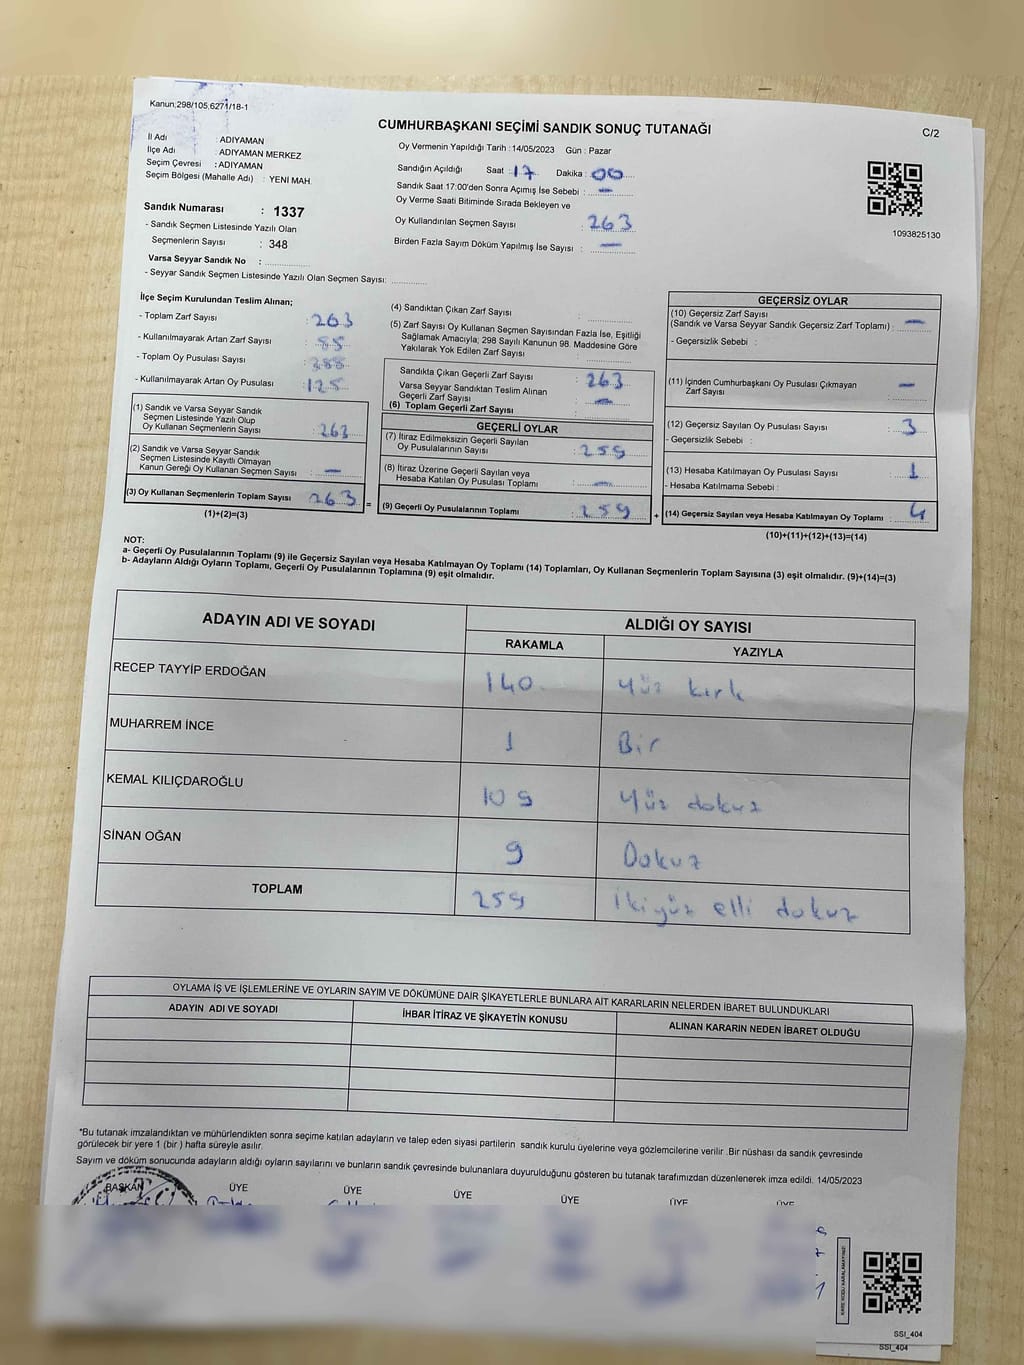 Kanun;298/105,6271/18-1
CUMHURBAŞKANI SEÇİMİ SANDIK SONUÇ TUTANAĞI
C/2
İl Adı : ADIYAMAN
İlçe Adı : ADIYAMAN MERKEZ
Seçim Çevresi : ADIYAMAN
Seçim Bölgesi (Mahalle Adı) : YENİ MAH.
Oy Vermenin Yapıldığı Tarih : 14/05/2023 Gün : Pazar
Sandığın Açıldığı Saat : 17 Dakika : 00
Sandık Saat 17:00'den Sonra Açımış İse Sebebi : —
Oy Verme Saati Bitiminde Sırada Bekleyen ve
Oy Kullandırılan Seçmen Sayısı : 263
Birden Fazla Sayım Döküm Yapılmış İse Sayısı : —
1093825130
Sandık Numarası : 1337
- Sandık Seçmen Listesinde Yazılı Olan
Seçmenlerin Sayısı : 348
Varsa Seyyar Sandık No :
- Seyyar Sandık Seçmen Listesinde Yazılı Olan Seçmen Sayısı:
İlçe Seçim Kurulundan Teslim Alınan;
- Toplam Zarf Sayısı : 263
- Kullanılmayarak Artan Zarf Sayısı : 85
- Toplam Oy Pusulası Sayısı : 388
- Kullanılmayarak Artan Oy Pusulası : 125
(1) Sandık ve Varsa Seyyar Sandık
Seçmen Listesinde Yazılı Olup
Oy Kullanan Seçmenlerin Sayısı : 263
(2) Sandık ve Varsa Seyyar Sandık
Seçmen Listesinde Kayıtlı Olmayan
Kanun Gereği Oy Kullanan Seçmen Sayısı : —
(3) Oy Kullanan Seçmenlerin Toplam Sayısı : 263 =
(1)+(2)=(3)
(4) Sandıktan Çıkan Zarf Sayısı :
(5) Zarf Sayısı Oy Kullanan Seçmen Sayısından Fazla İse, Eşitliği
Sağlamak Amacıyla; 298 Sayılı Kanunun 98. Maddesine Göre
Yakılarak Yok Edilen Zarf Sayısı :
Sandıkta Çıkan Geçerli Zarf Sayısı : 263
Varsa Seyyar Sandıktan Teslim Alınan
Geçerli Zarf Sayısı : —
(6) Toplam Geçerli Zarf Sayısı :
GEÇERLİ OYLAR
(7) İtiraz Edilmeksizin Geçerli Sayılan
Oy Pusulalarının Sayısı : 259
(8) İtiraz Üzerine Geçerli Sayılan veya
Hesaba Katılan Oy Pusulası Toplamı : —
(9) Geçerli Oy Pusulalarının Toplamı : 259 +
GEÇERSİZ OYLAR
(10) Geçersiz Zarf Sayısı
(Sandık ve Varsa Seyyar Sandık Geçersiz Zarf Toplamı) : —
- Geçersizlik Sebebi :
(11) İçinden Cumhurbaşkanı Oy Pusulası Çıkmayan
Zarf Sayısı : —
(12) Geçersiz Sayılan Oy Pusulası Sayısı : 3
- Geçersizlik Sebebi :
(13) Hesaba Katılmayan Oy Pusulası Sayısı : 1
- Hesaba Katılmama Sebebi :
(14) Geçersiz Sayılan veya Hesaba Katılmayan Oy Toplamı : 4
(10)+(11)+(12)+(13)=(14)
NOT:
a- Geçerli Oy Pusulalarının Toplamı (9) ile Geçersiz Sayılan veya Hesaba Katılmayan Oy Toplamı (14) Toplamları, Oy Kullanan Seçmenlerin Toplam Sayısına (3) eşit olmalıdır. (9)+(14)=(3)
b- Adayların Aldığı Oyların Toplamı, Geçerli Oy Pusulalarının Toplamına (9) eşit olmalıdır.
ADAYIN ADI VE SOYADI ALDIĞI OY SAYISI
RAKAMLA YAZIYLA
RECEP TAYYİP ERDOĞAN 140 Yüz kırk
MUHARREM İNCE 1 Bir
KEMAL KILIÇDAROĞLU 109 Yüz dokuz
SİNAN OĞAN 9 Dokuz
TOPLAM 259 İkiyüz elli dokuz
OYLAMA İŞ VE İŞLEMLERİNE VE OYLARIN SAYIM VE DÖKÜMÜNE DAİR ŞİKAYETLERLE BUNLARA AİT KARARLARIN NELERDEN İBARET BULUNDUKLARI
ADAYIN ADI VE SOYADI İHBAR İTİRAZ VE ŞİKAYETİN KONUSU ALINAN KARARIN NEDEN İBARET OLDUĞU
*Bu tutanak imzalandıktan ve mühürlendikten sonra seçime katılan adayların ve talep eden siyasi partilerin sandık kurulu üyelerine veya gözlemcilerine verilir .Bir nüshası da sandık çevresinde
görülecek bir yere 1 (bir ) hafta süreyle asılır.
Sayım ve döküm sonucunda adayların aldığı oyların sayılarını ve bunların sandık çevresinde bulunanlara duyurulduğunu gösteren bu tutanak tarafımızdan düzenlenerek imza edildi. 14/05/2023
BAŞKAN ÜYE ÜYE ÜYE ÜYE ÜYE ÜYE
KARE KODU KARALAMAYINIZ!
SSI_404
SSI_404